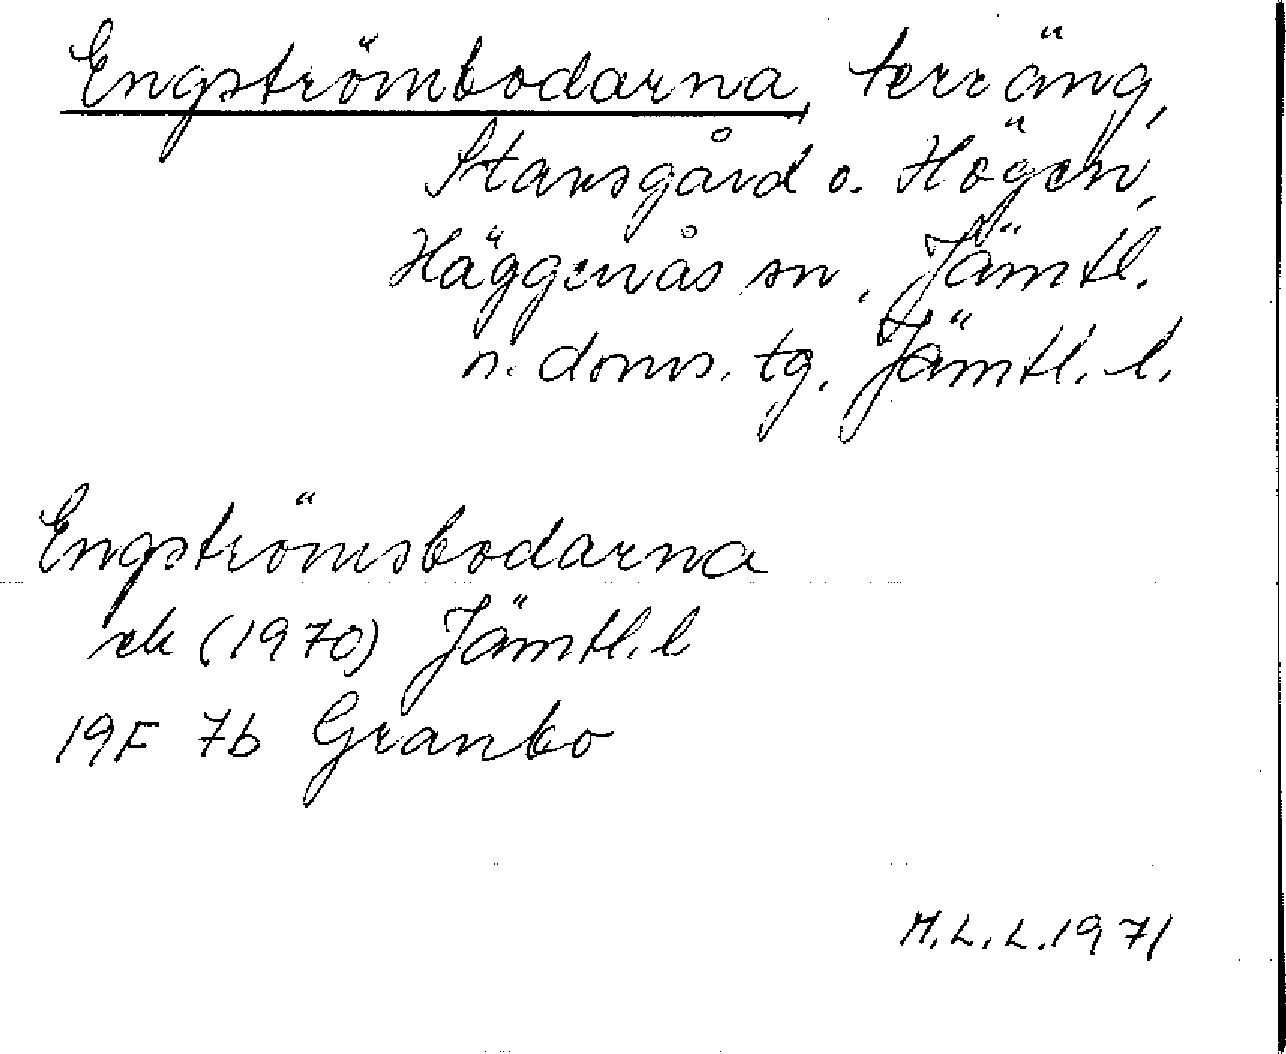 Engströmbodarna, terräng,
Stavsgård o. Högen,
Häggenås sn, Jämtl.
n. doms. tg. Jämtl. l.
Engströmsbodarna
ek (1970) Jämtl. l
19F 7b Granbo
M.L.L. 1971